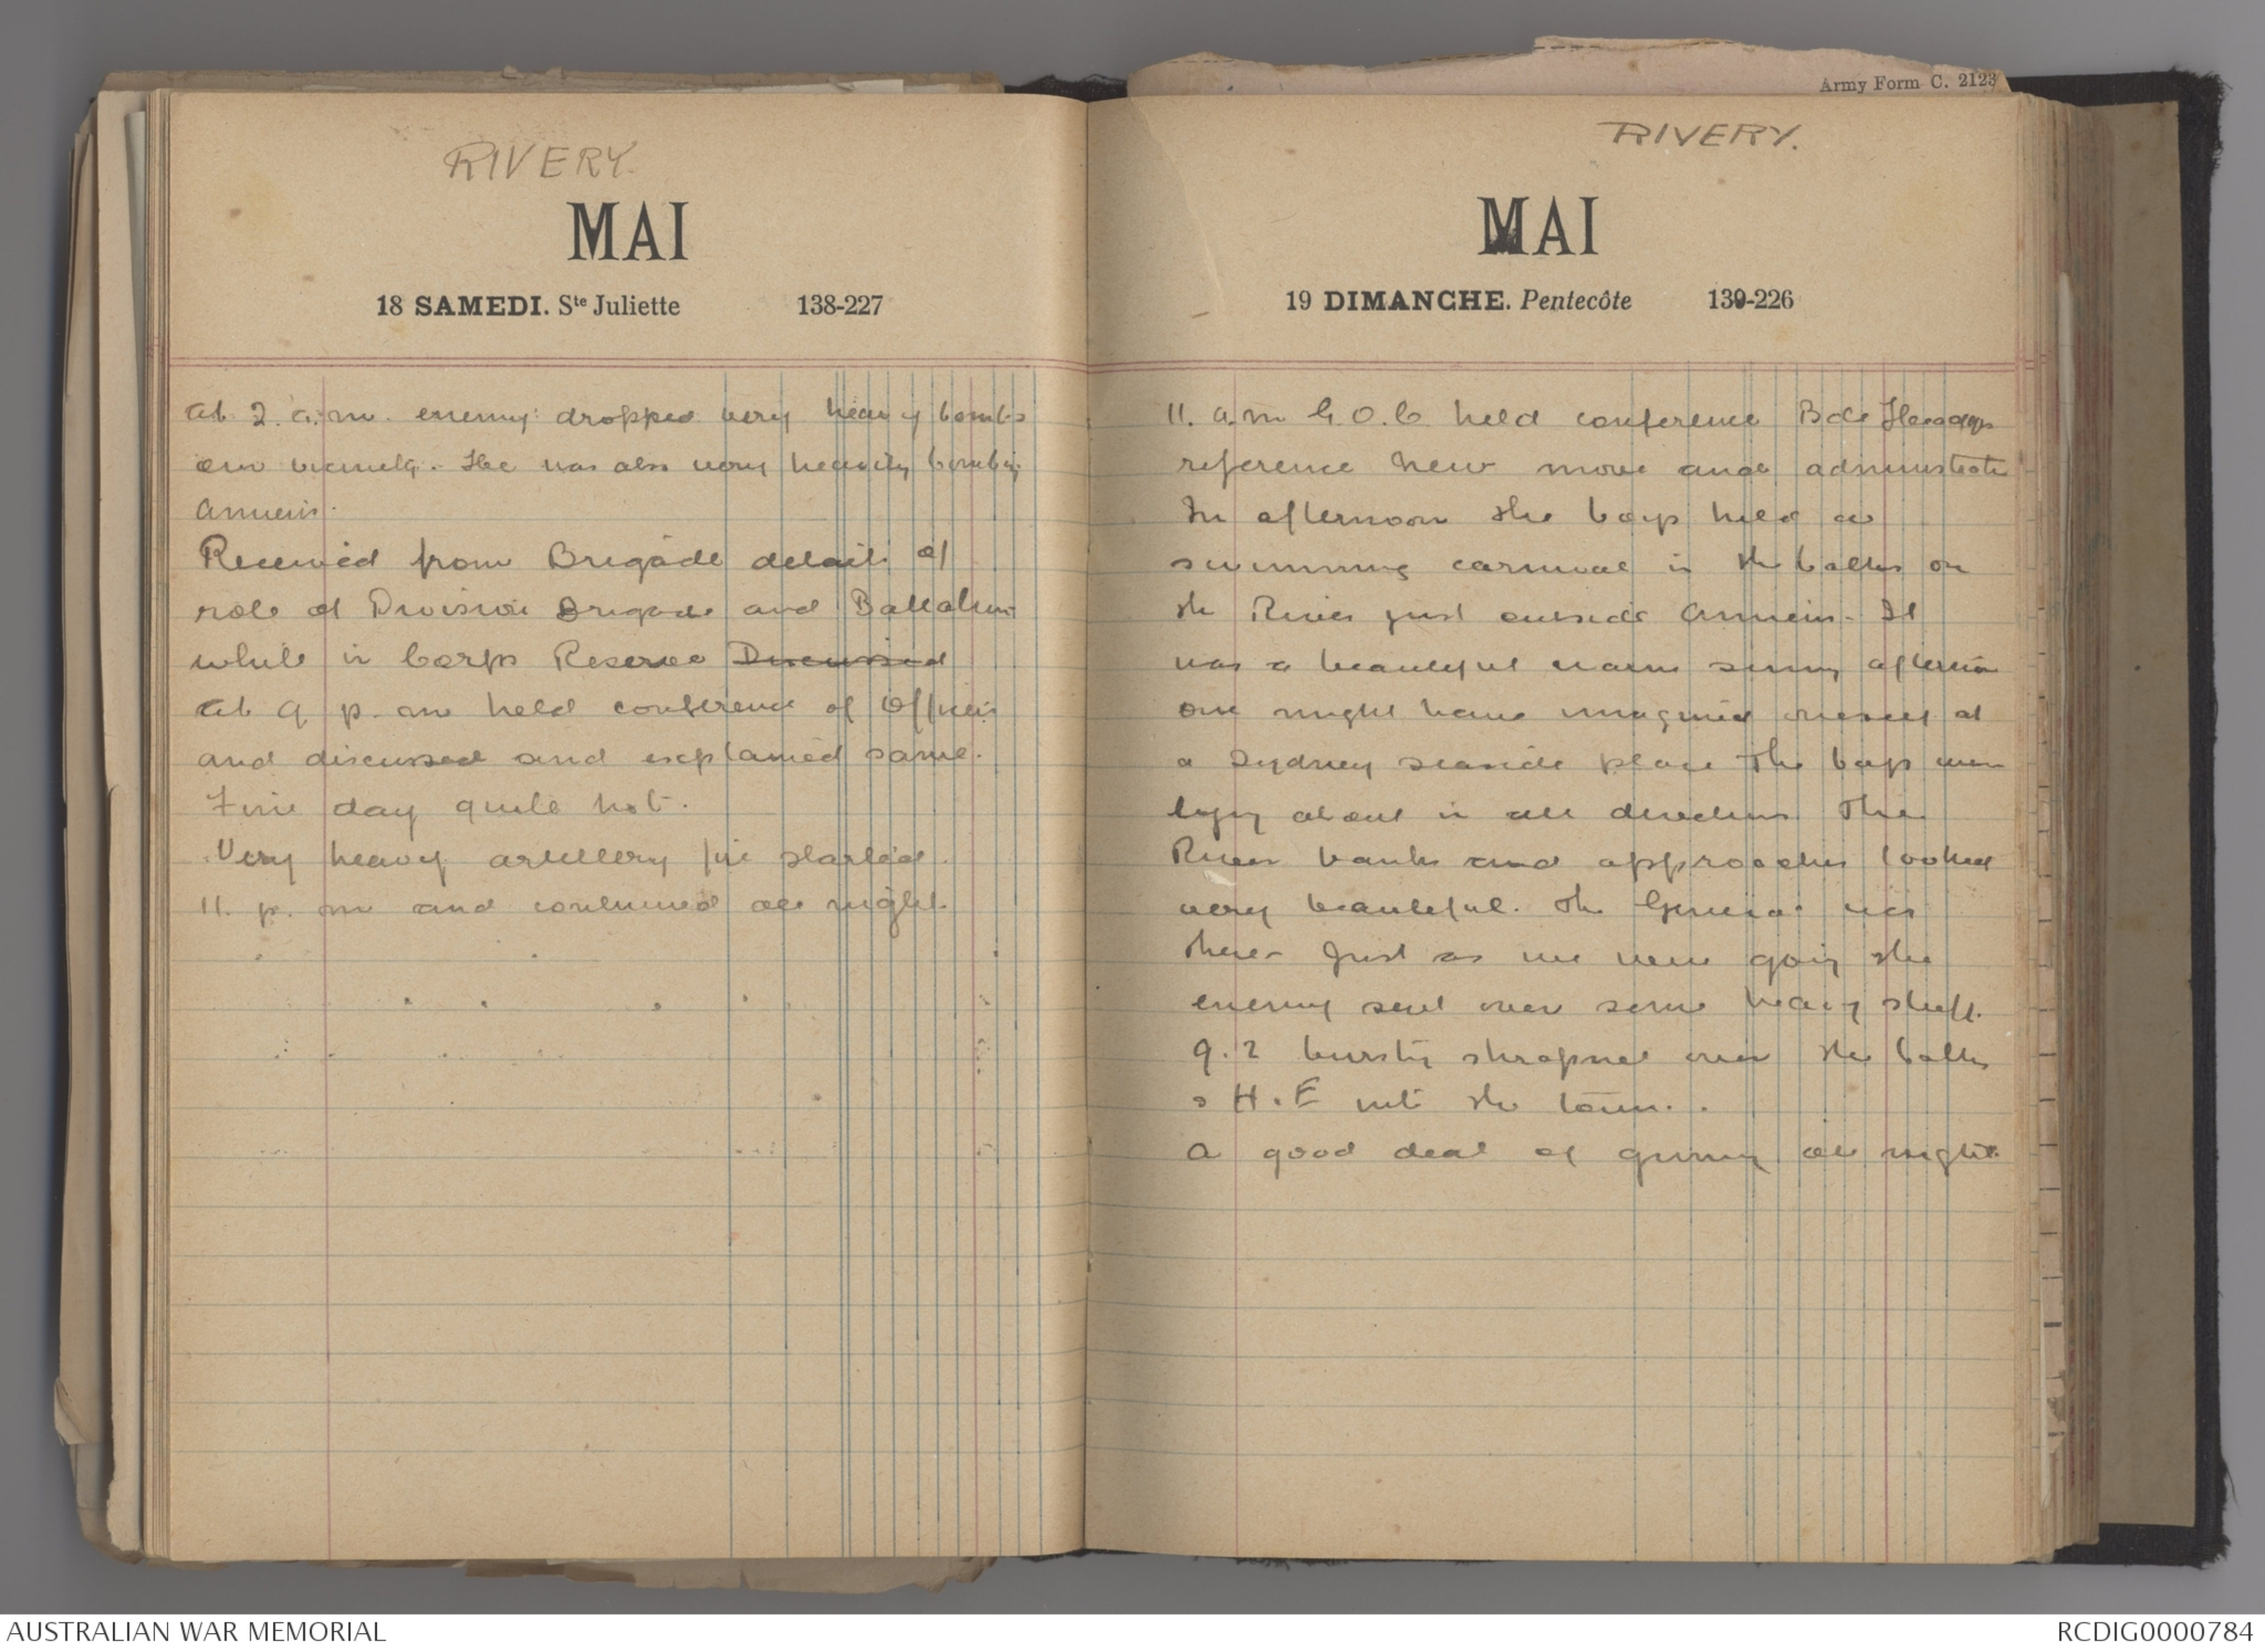 RIVERY.
MAI
18 SAMEDI. Ste Juliette 138-227
At 2. a.m. enemy dropped very heavy bombs
our vicinity. He was also very heavily bombing
Amiens.
Received from Brigade details of
role of Division Brigade and Battalion
while in Corps Reserve Discussed
At 9 p.m held conference of Officers
and discussed and explained same.
Fine day quite hot.
Very heavy artillery fire started
11. p.m and continued all night.
Army Form C. 2123
RIVERY.
MAI
19 DIMANCHE. Pentecôte 139-226
11. a.m G.O.C held conference Bde Headqrs
reference new move and
In afternoon the boys held a
swimming carnival in the baths on
the River just outside Amiens. It
was a beautiful warm sunny afternoon
one might have imagined oneself at
a Sydney seaside place The boys were
lying about in all directions The
River banks and approaches looked
very beautiful. The General was
there Just as we were going the
enemy sent over some heavy stuff.
9.2 bursting shrapnel over the baths
& H.E into the town.
A good deal of gunning all night
AUSTRALIAN WAR MEMORIAL
RCDIG0000784